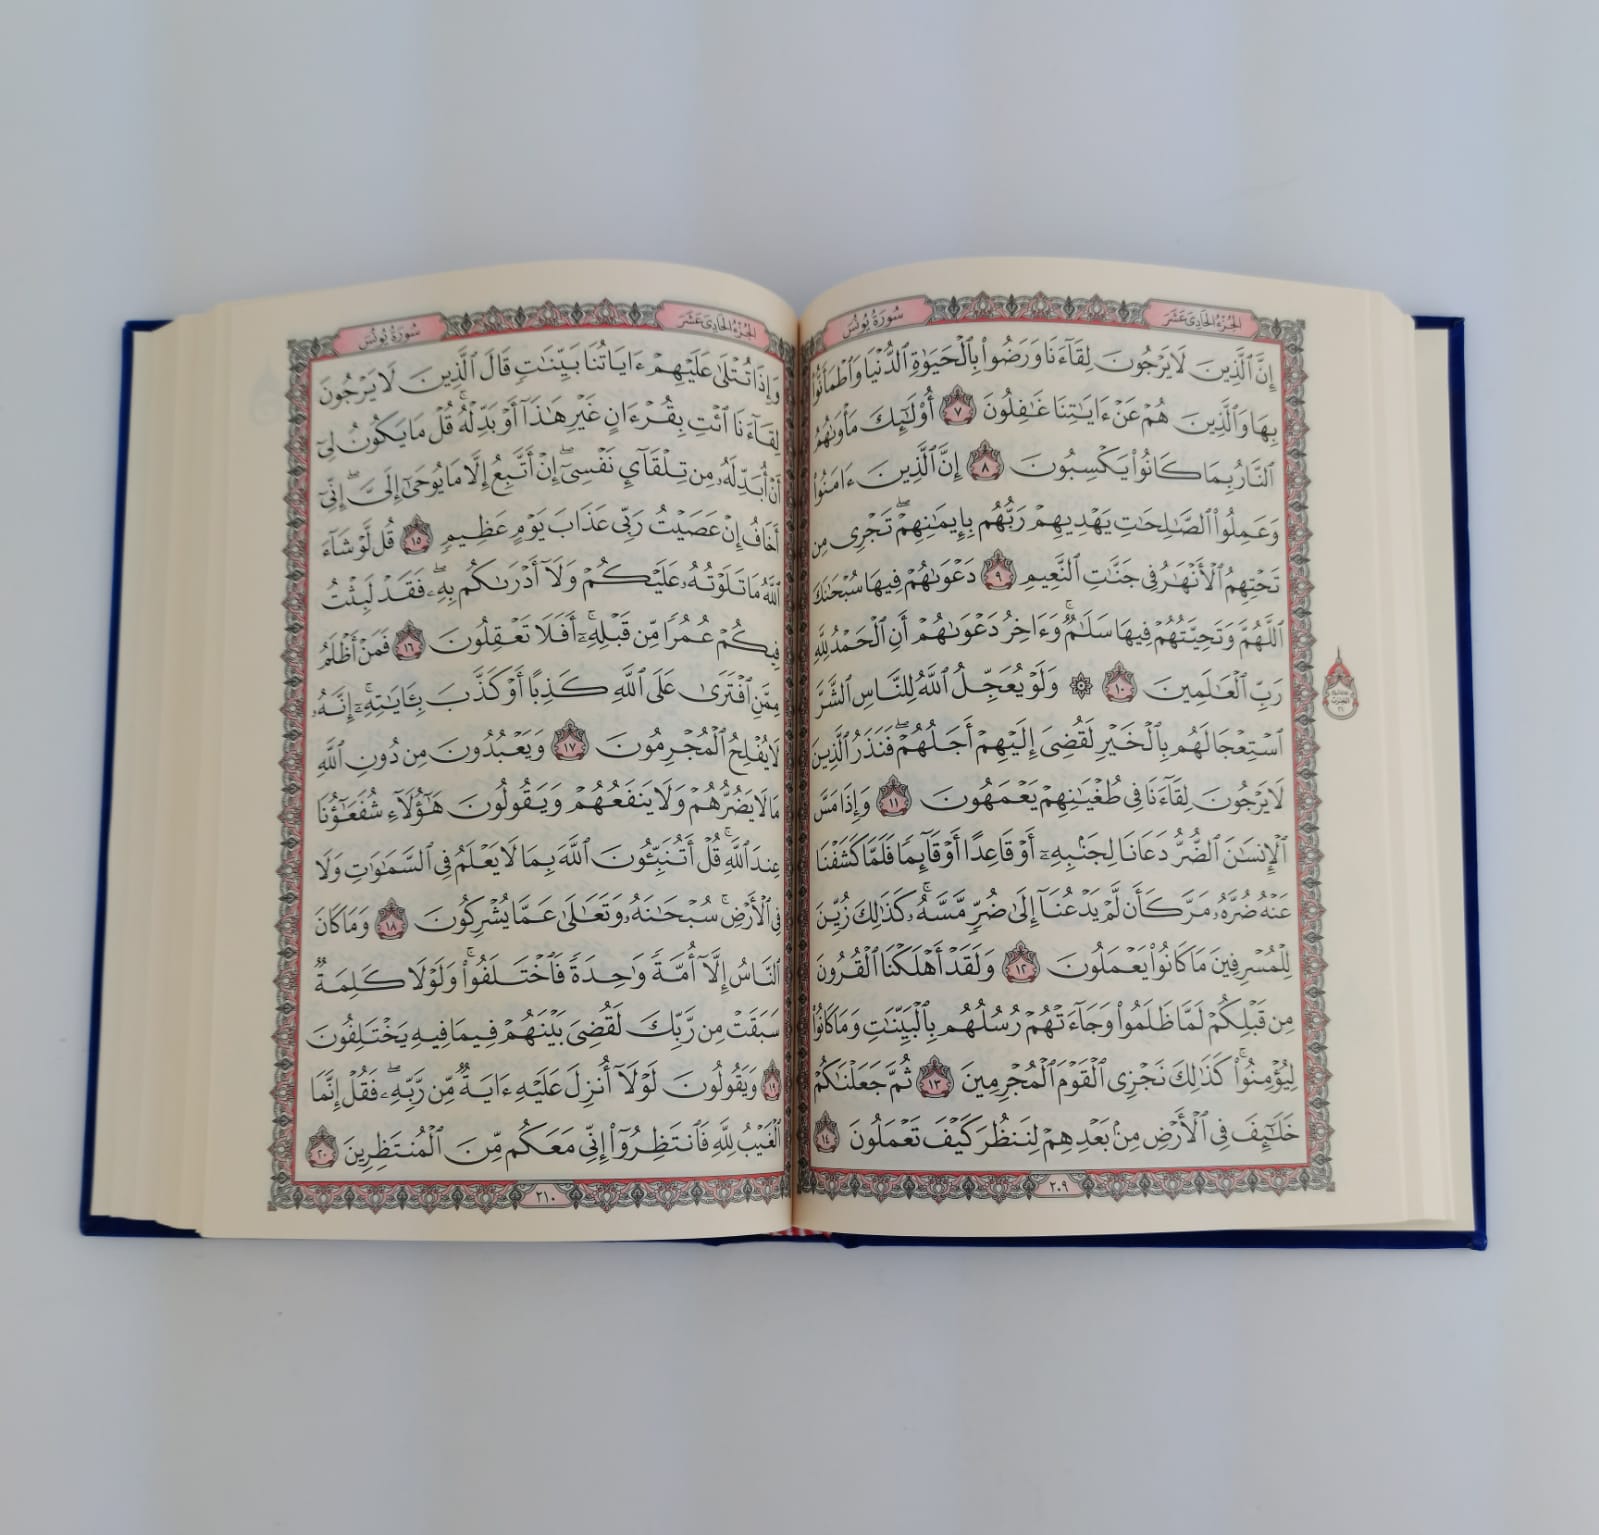 سُورَةُ يُونُسَ
الجُزْءُ الحَادِيَ عَشَرَ
إِنَّ ٱلَّذِينَ لَا يَرْجُونَ لِقَآءَنَا وَرَضُوا۟ بِٱلْحَيَوٰةِ ٱلدُّنْيَا وَٱطْمَأَنُّوا۟
بِهَا وَٱلَّذِينَ هُمْ عَنْ ءَايَٰتِنَا غَٰفِلُونَ ٧ أُو۟لَٰٓئِكَ مَأْوَىٰهُمُ
ٱلنَّارُ بِمَا كَانُوا۟ يَكْسِبُونَ ٨ إِنَّ ٱلَّذِينَ ءَامَنُوا۟
وَعَمِلُوا۟ ٱلصَّٰلِحَٰتِ يَهْدِيهِمْ رَبُّهُم بِإِيمَٰنِهِمْ ۖ تَجْرِى مِن
تَحْتِهِمُ ٱلْأَنْهَٰرُ فِى جَنَّٰتِ ٱلنَّعِيمِ ٩ دَعْوَىٰهُمْ فِيهَا سُبْحَٰنَكَ
ٱللَّهُمَّ وَتَحِيَّتُهُمْ فِيهَا سَلَٰمٌ ۚ وَءَاخِرُ دَعْوَىٰهُمْ أَنِ ٱلْحَمْدُ لِلَّهِ
رَبِّ ٱلْعَٰلَمِينَ ١٠ ۞ وَلَوْ يُعَجِّلُ ٱللَّهُ لِلنَّاسِ ٱلشَّرَّ
ٱسْتِعْجَالَهُم بِٱلْخَيْرِ لَقُضِىَ إِلَيْهِمْ أَجَلُهُمْ ۖ فَنَذَرُ ٱلَّذِينَ
لَا يَرْجُونَ لِقَآءَنَا فِى طُغْيَٰنِهِمْ يَعْمَهُونَ ١١ وَإِذَا مَسَّ
ٱلْإِنسَٰنَ ٱلضُّرُّ دَعَانَا لِجَنۢبِهِۦٓ أَوْ قَاعِدًا أَوْ قَآئِمًا فَلَمَّا كَشَفْنَا
عَنْهُ ضُرَّهُۥ مَرَّ كَأَن لَّمْ يَدْعُنَآ إِلَىٰ ضُرٍّ مَّسَّهُۥ ۚ كَذَٰلِكَ زُيِّنَ
لِلْمُسْرِفِينَ مَا كَانُوا۟ يَعْمَلُونَ ١٢ وَلَقَدْ أَهْلَكْنَا ٱلْقُرُونَ
مِن قَبْلِكُمْ لَمَّا ظَلَمُوا۟ وَجَآءَتْهُمْ رُسُلُهُم بِٱلْبَيِّنَٰتِ وَمَا كَانُوا۟
لِيُؤْمِنُوا۟ ۚ كَذَٰلِكَ نَجْزِى ٱلْقَوْمَ ٱلْمُجْرِمِينَ ١٣ ثُمَّ جَعَلْنَٰكُمْ
خَلَٰٓئِفَ فِى ٱلْأَرْضِ مِنۢ بَعْدِهِمْ لِنَنظُرَ كَيْفَ تَعْمَلُونَ ١٤
٢٠٩
سُورَةُ يُونُسَ
الجُزْءُ الحَادِيَ عَشَرَ
وَإِذَا تُتْلَىٰ عَلَيْهِمْ ءَايَاتُنَا بَيِّنَٰتٍ قَالَ ٱلَّذِينَ لَا يَرْجُونَ
لِقَآءَنَا ٱئْتِ بِقُرْءَانٍ غَيْرِ هَٰذَآ أَوْ بَدِّلْهُ ۚ قُلْ مَا يَكُونُ لِىٓ
أَنْ أُبَدِّلَهُۥ مِن تِلْقَآئِ نَفْسِىٓ ۖ إِنْ أَتَّبِعُ إِلَّا مَا يُوحَىٰٓ إِلَىَّ ۖ إِنِّىٓ
أَخَافُ إِنْ عَصَيْتُ رَبِّى عَذَابَ يَوْمٍ عَظِيمٍ ١٥ قُل لَّوْ شَآءَ
ٱللَّهُ مَا تَلَوْتُهُۥ عَلَيْكُمْ وَلَآ أَدْرَىٰكُم بِهِۦ ۖ فَقَدْ لَبِثْتُ
فِيكُمْ عُمُرًا مِّن قَبْلِهِۦٓ ۚ أَفَلَا تَعْقِلُونَ ١٦ فَمَنْ أَظْلَمُ
مِمَّنِ ٱفْتَرَىٰ عَلَى ٱللَّهِ كَذِبًا أَوْ كَذَّبَ بِـَٔايَٰتِهِۦٓ ۚ إِنَّهُۥ
لَا يُفْلِحُ ٱلْمُجْرِمُونَ ١٧ وَيَعْبُدُونَ مِن دُونِ ٱللَّهِ
مَا لَا يَضُرُّهُمْ وَلَا يَنفَعُهُمْ وَيَقُولُونَ هَٰٓؤُلَآءِ شُفَعَٰٓؤُنَا
عِندَ ٱللَّهِ ۚ قُلْ أَتُنَبِّـُٔونَ ٱللَّهَ بِمَا لَا يَعْلَمُ فِى ٱلسَّمَٰوَٰتِ وَلَا
فِى ٱلْأَرْضِ ۚ سُبْحَٰنَهُۥ وَتَعَٰلَىٰ عَمَّا يُشْرِكُونَ ١٨ وَمَا كَانَ
ٱلنَّاسُ إِلَّآ أُمَّةً وَٰحِدَةً فَٱخْتَلَفُوا۟ ۚ وَلَوْلَا كَلِمَةٌ
سَبَقَتْ مِن رَّبِّكَ لَقُضِىَ بَيْنَهُمْ فِيمَا فِيهِ يَخْتَلِفُونَ
١٩ وَيَقُولُونَ لَوْلَآ أُنزِلَ عَلَيْهِ ءَايَةٌ مِّن رَّبِّهِۦ ۖ فَقُلْ إِنَّمَا
ٱلْغَيْبُ لِلَّهِ فَٱنتَظِرُوٓا۟ إِنِّى مَعَكُم مِّنَ ٱلْمُنتَظِرِينَ ٢٠
٢١٠